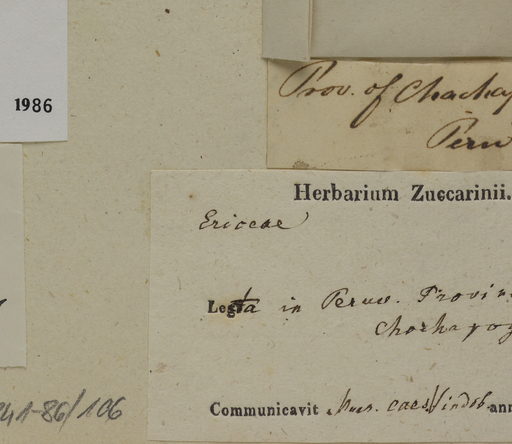 1986
Prov. of Chachap
Peru
Herbarium Zuccarinii.
Ericeae
Legta in Peruv. Provin
Chachapoy
Communicavit Mus. caes. Vindob. ann
241-86/106